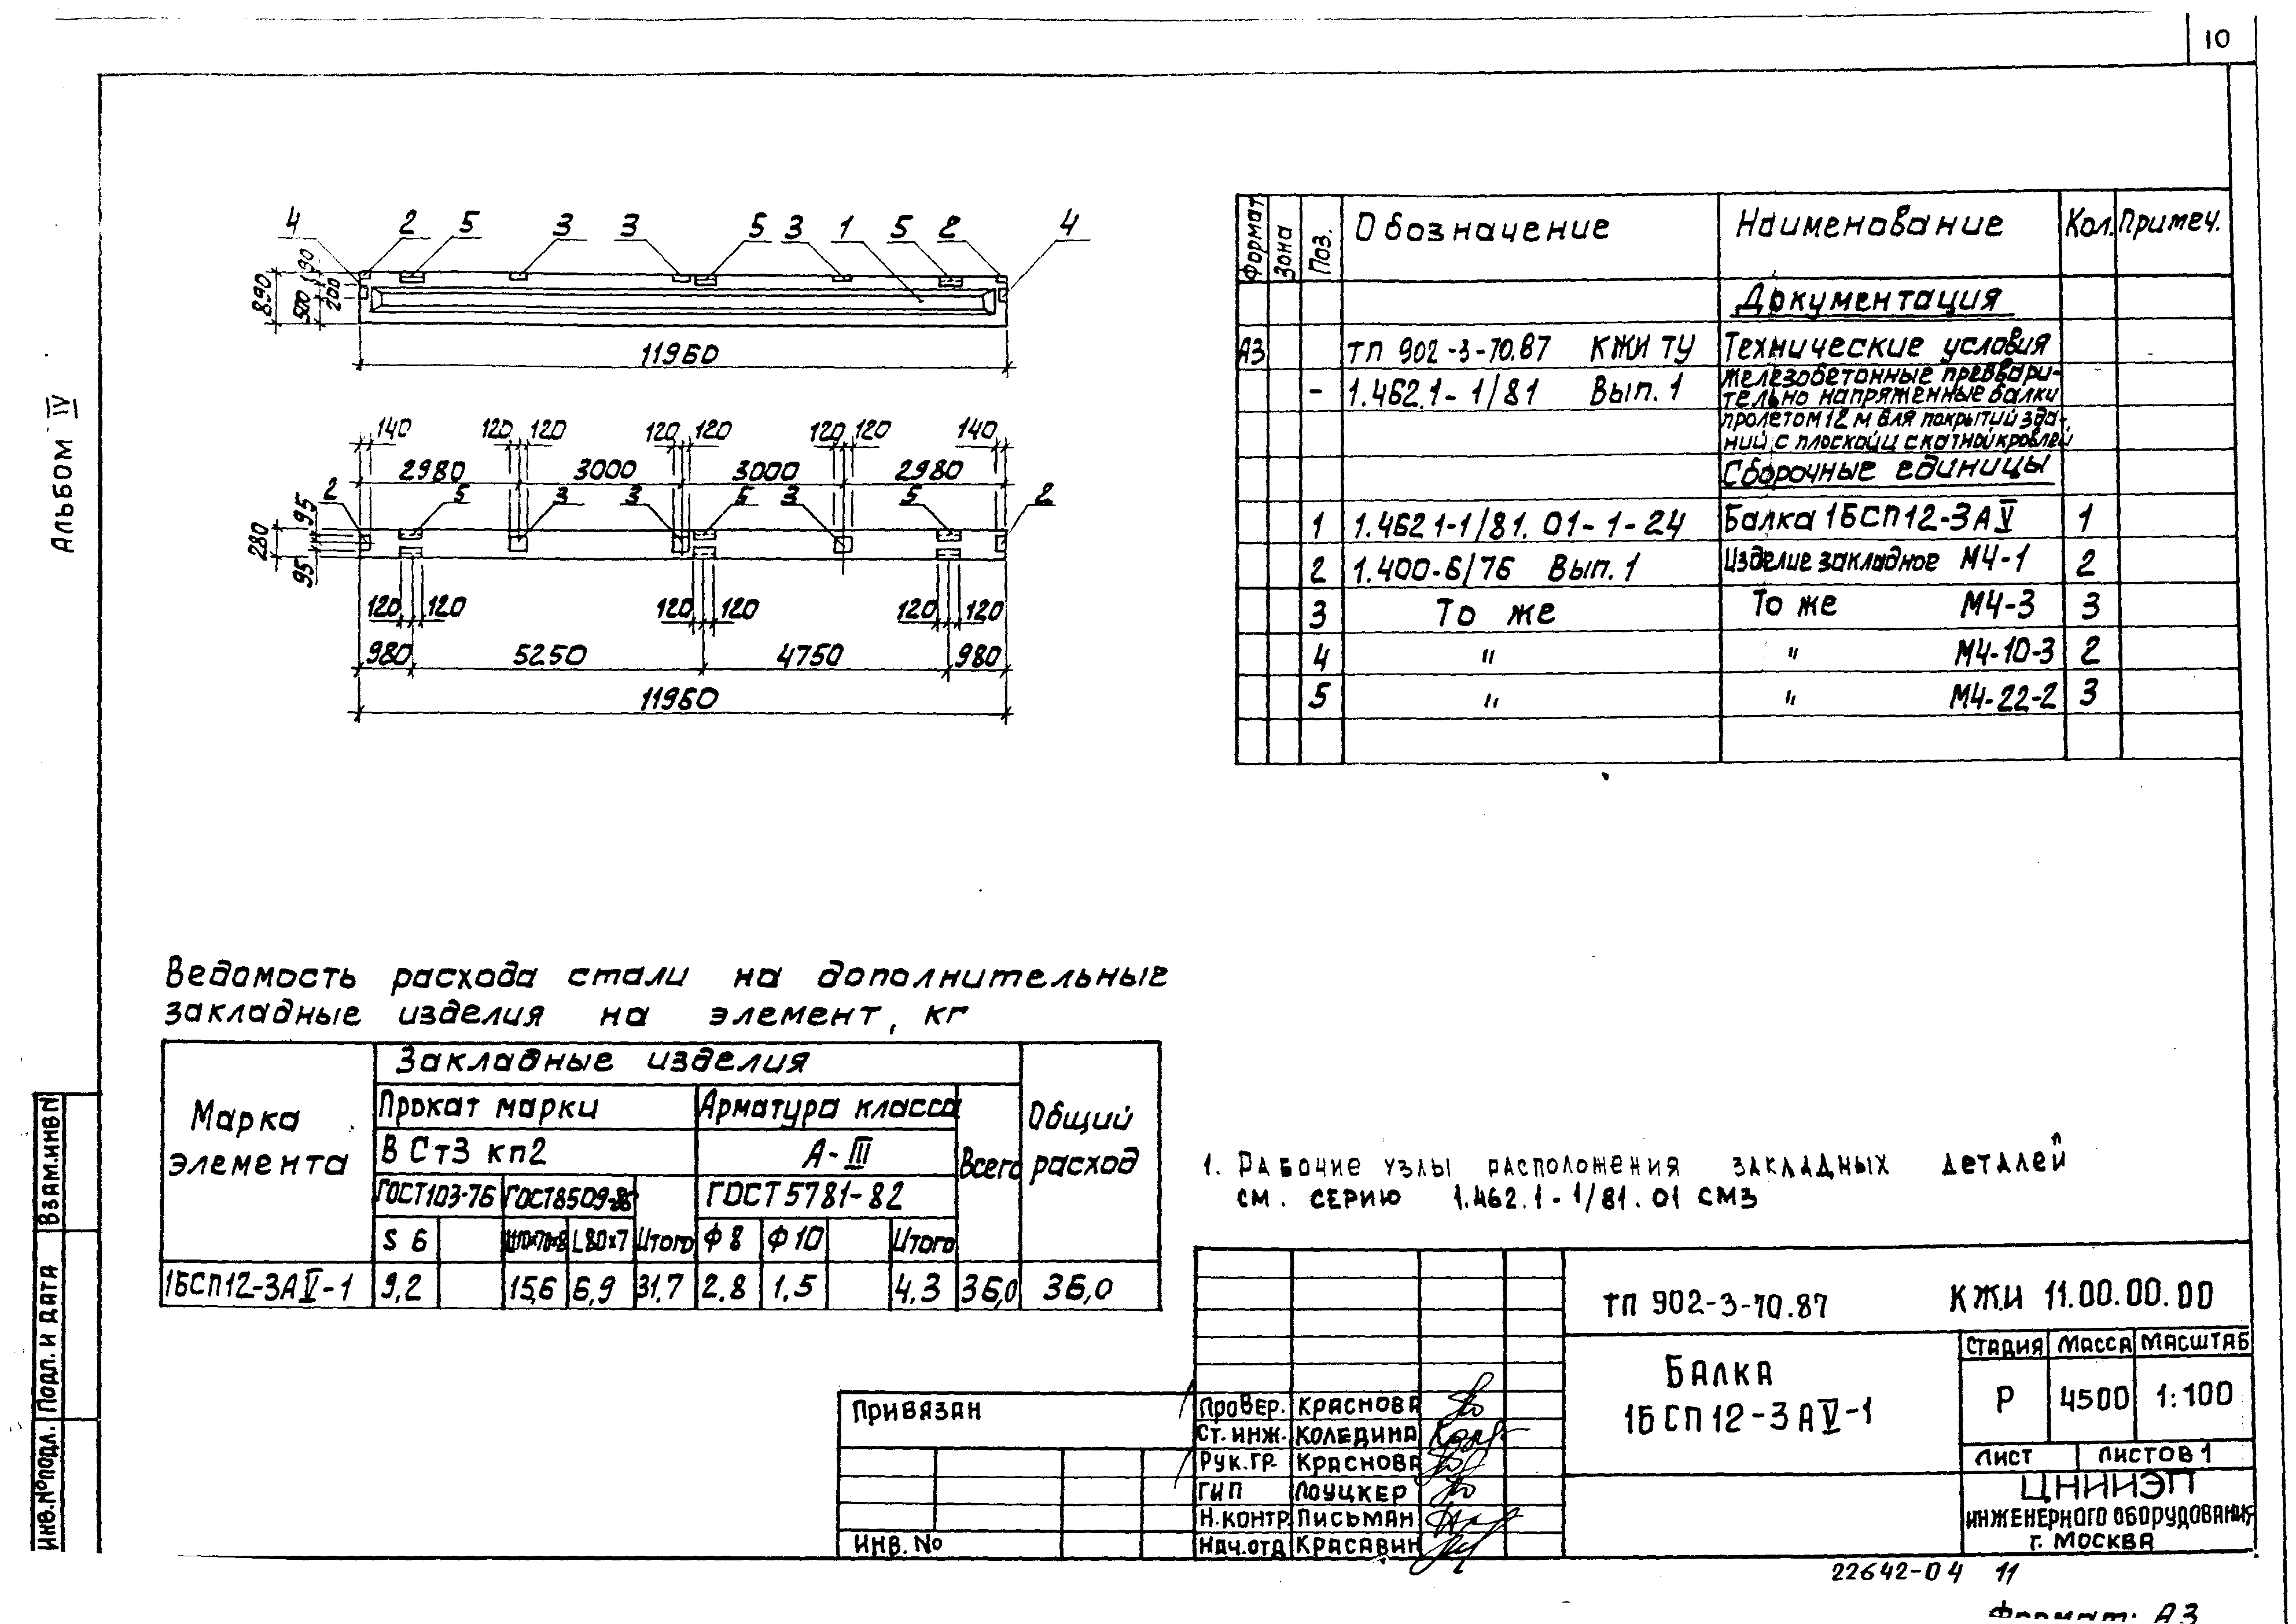 10
Альбом IV
4 2 5 3 3 5 3 1 5 2 4
890 190 500 200
11960
140 120 120 120 120 120 120 140
2980 3000 3000 2980
2 5 3 3 5 3 5 2
280 95 95
120 120 120 120 120 120
980 5250 4750 980
11960
Формат Зона Поз. Обозначение Наименование Кол. Примеч.
Документация
А3 ТП 902-3-70.87 КЖИ ТУ Технические условия
- 1.462.1-1/81 Вып. 1 Железобетонные предвари-
тельно напряженные балки
пролетом 12 м для покрытий зда-
ний с плоской и скатной кровлей
Сборочные единицы
1 1.462 1-1/81. 01-1-24 Балка 1БСП12-3АV 1
2 1.400-6/76 Вып. 1 Изделие закладное М4-1 2
3 То же То же М4-3 3
4 " " М4-10-3 2
5 " " М4-22-2 3
Ведомость расхода стали на дополнительные
закладные изделия на элемент, кг
Марка элемента Закладные изделия Общий расход
Прокат марки Арматура класса Всего
В Ст3 кп2 А-III
ГОСТ103-76 ГОСТ8509-86 ГОСТ5781-82
S 6 L80×7 Итого Ф8 Ф10 Итого
1БСП12-3АV-1 9,2 15,6 6,9 31,7 2.8 1.5 4.3 36,0 36,0
1. Рабочие узлы расположения закладных деталей
см. серию 1.462.1-1/81.01 СМ3
ТП 902-3-70.87 КЖИ 11.00.00.00
Балка
1БСП12-3АV-1
Стадия Масса Масштаб
Р 4500 1:100
Лист Листов 1
ЦНИИЭП
инженерного оборудования
г. Москва
Привязан
Инв. №
Провер. Краснова
Ст. инж. Коледина
Рук. гр. Краснова
ГИП Лоуцкер
Н. контр Письман
Нач. отд Красавин
Инв.№подл. Подп. и дата Взам.инв№
22642-04 11
Формат: А3